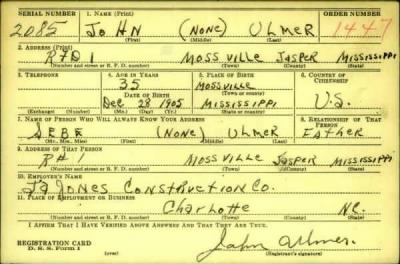 SERIAL NUMBER 1. NAME (Print) ORDER NUMBER
2085 JOHN (NONE) ULMER 1447
(First) (Middle) (Last)
2. ADDRESS (Print)
RFD 1 MOSSVILLE JASPER MISSISSIPPI
(Number and street or R. F. D. number) (Town) (County) (State)
3. TELEPHONE 4. AGE IN YEARS 5. PLACE OF BIRTH 6. COUNTRY OF CITIZENSHIP
35 MOSSVILLE
DATE OF BIRTH (Town or county)
DEC 28 1905 MISSISSIPPI U.S.
(Exchange) (Number) (Mo.) (Day) (Yr.) (State or country)
7. NAME OF PERSON WHO WILL ALWAYS KNOW YOUR ADDRESS 8. RELATIONSHIP OF THAT PERSON
(NONE) ULMER FATHER
(Mr., Mrs., Miss) (First) (Middle) (Last)
9. ADDRESS OF THAT PERSON
R# 1 MOSSVILLE JASPER MISSISSIPPI
(Number and street or R. F. D. number) (Town) (County) (State)
10. EMPLOYER'S NAME
JA JONES CONSTRUCTION CO.
11. PLACE OF EMPLOYMENT OR BUSINESS
CharLotte NC.
(Number and street or R. F. D. number) (Town) (County) (State)
I AFFIRM THAT I HAVE VERIFIED ABOVE ANSWERS AND THAT THEY ARE TRUE.
REGISTRATION CARD John Ulmer.
D. S. S. Form 1 (Registrant's signature)